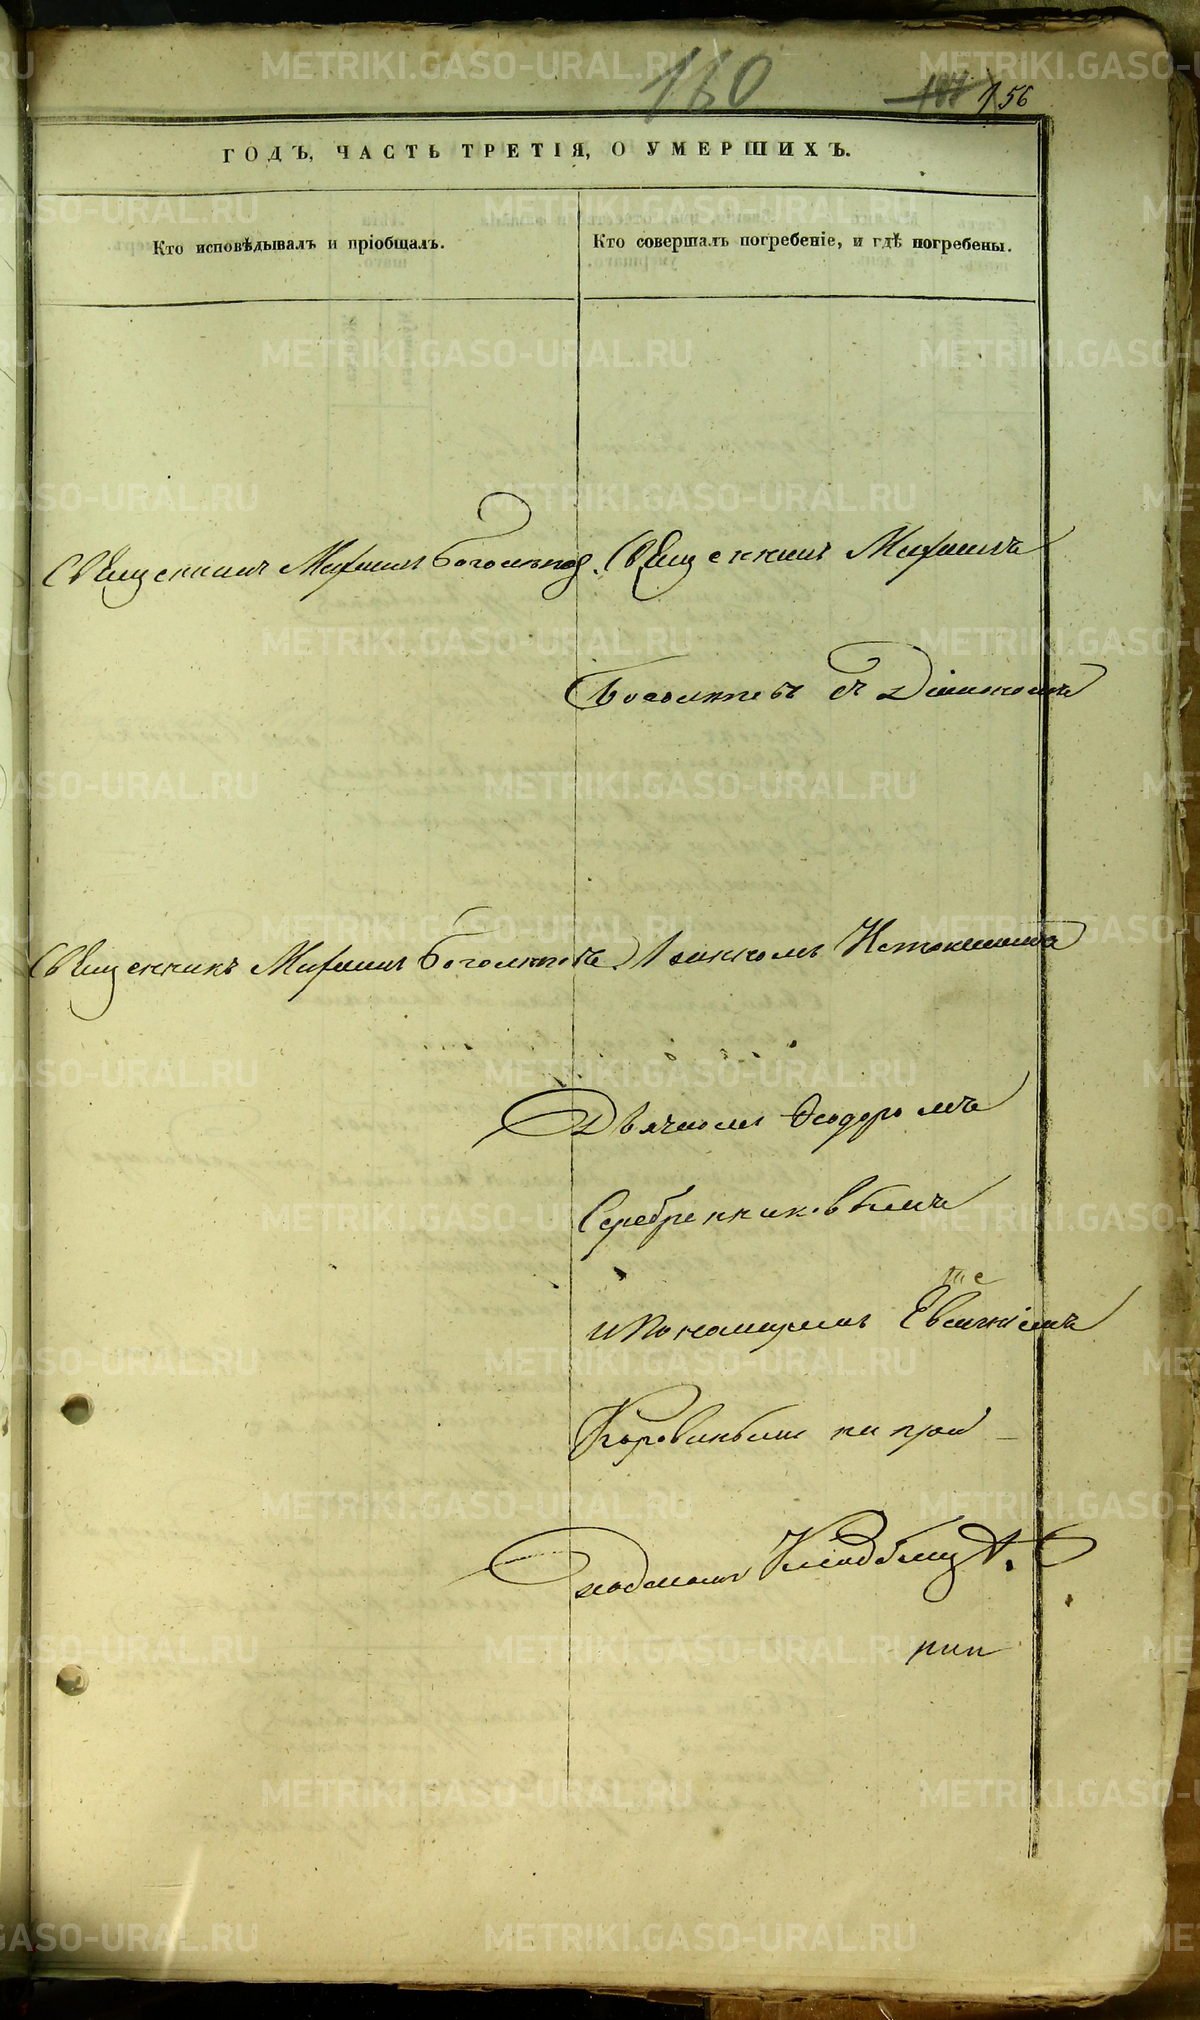 160
156
ГОДЪ, ЧАСТЬ ТРЕТІЯ, О УМЕРШИХЪ.
Кто исповѣдывалъ и пріобщалъ.
Кто совершалъ погребеніе, и гдѣ погребены.
Священникъ Михаилъ Боголѣпов.
Священникъ Михаилъ
Боголѣповъ съ Діакономъ
Священникъ Михаилъ Боголѣповъ.
Іоанномъ
Дьячкомъ Ѳеодоромъ
Серебренниковымъ
и Пономаремъ
Коровинымъ на при
ходскомъ Кладбищѣ.
METRIKI.GASO-URAL.RU